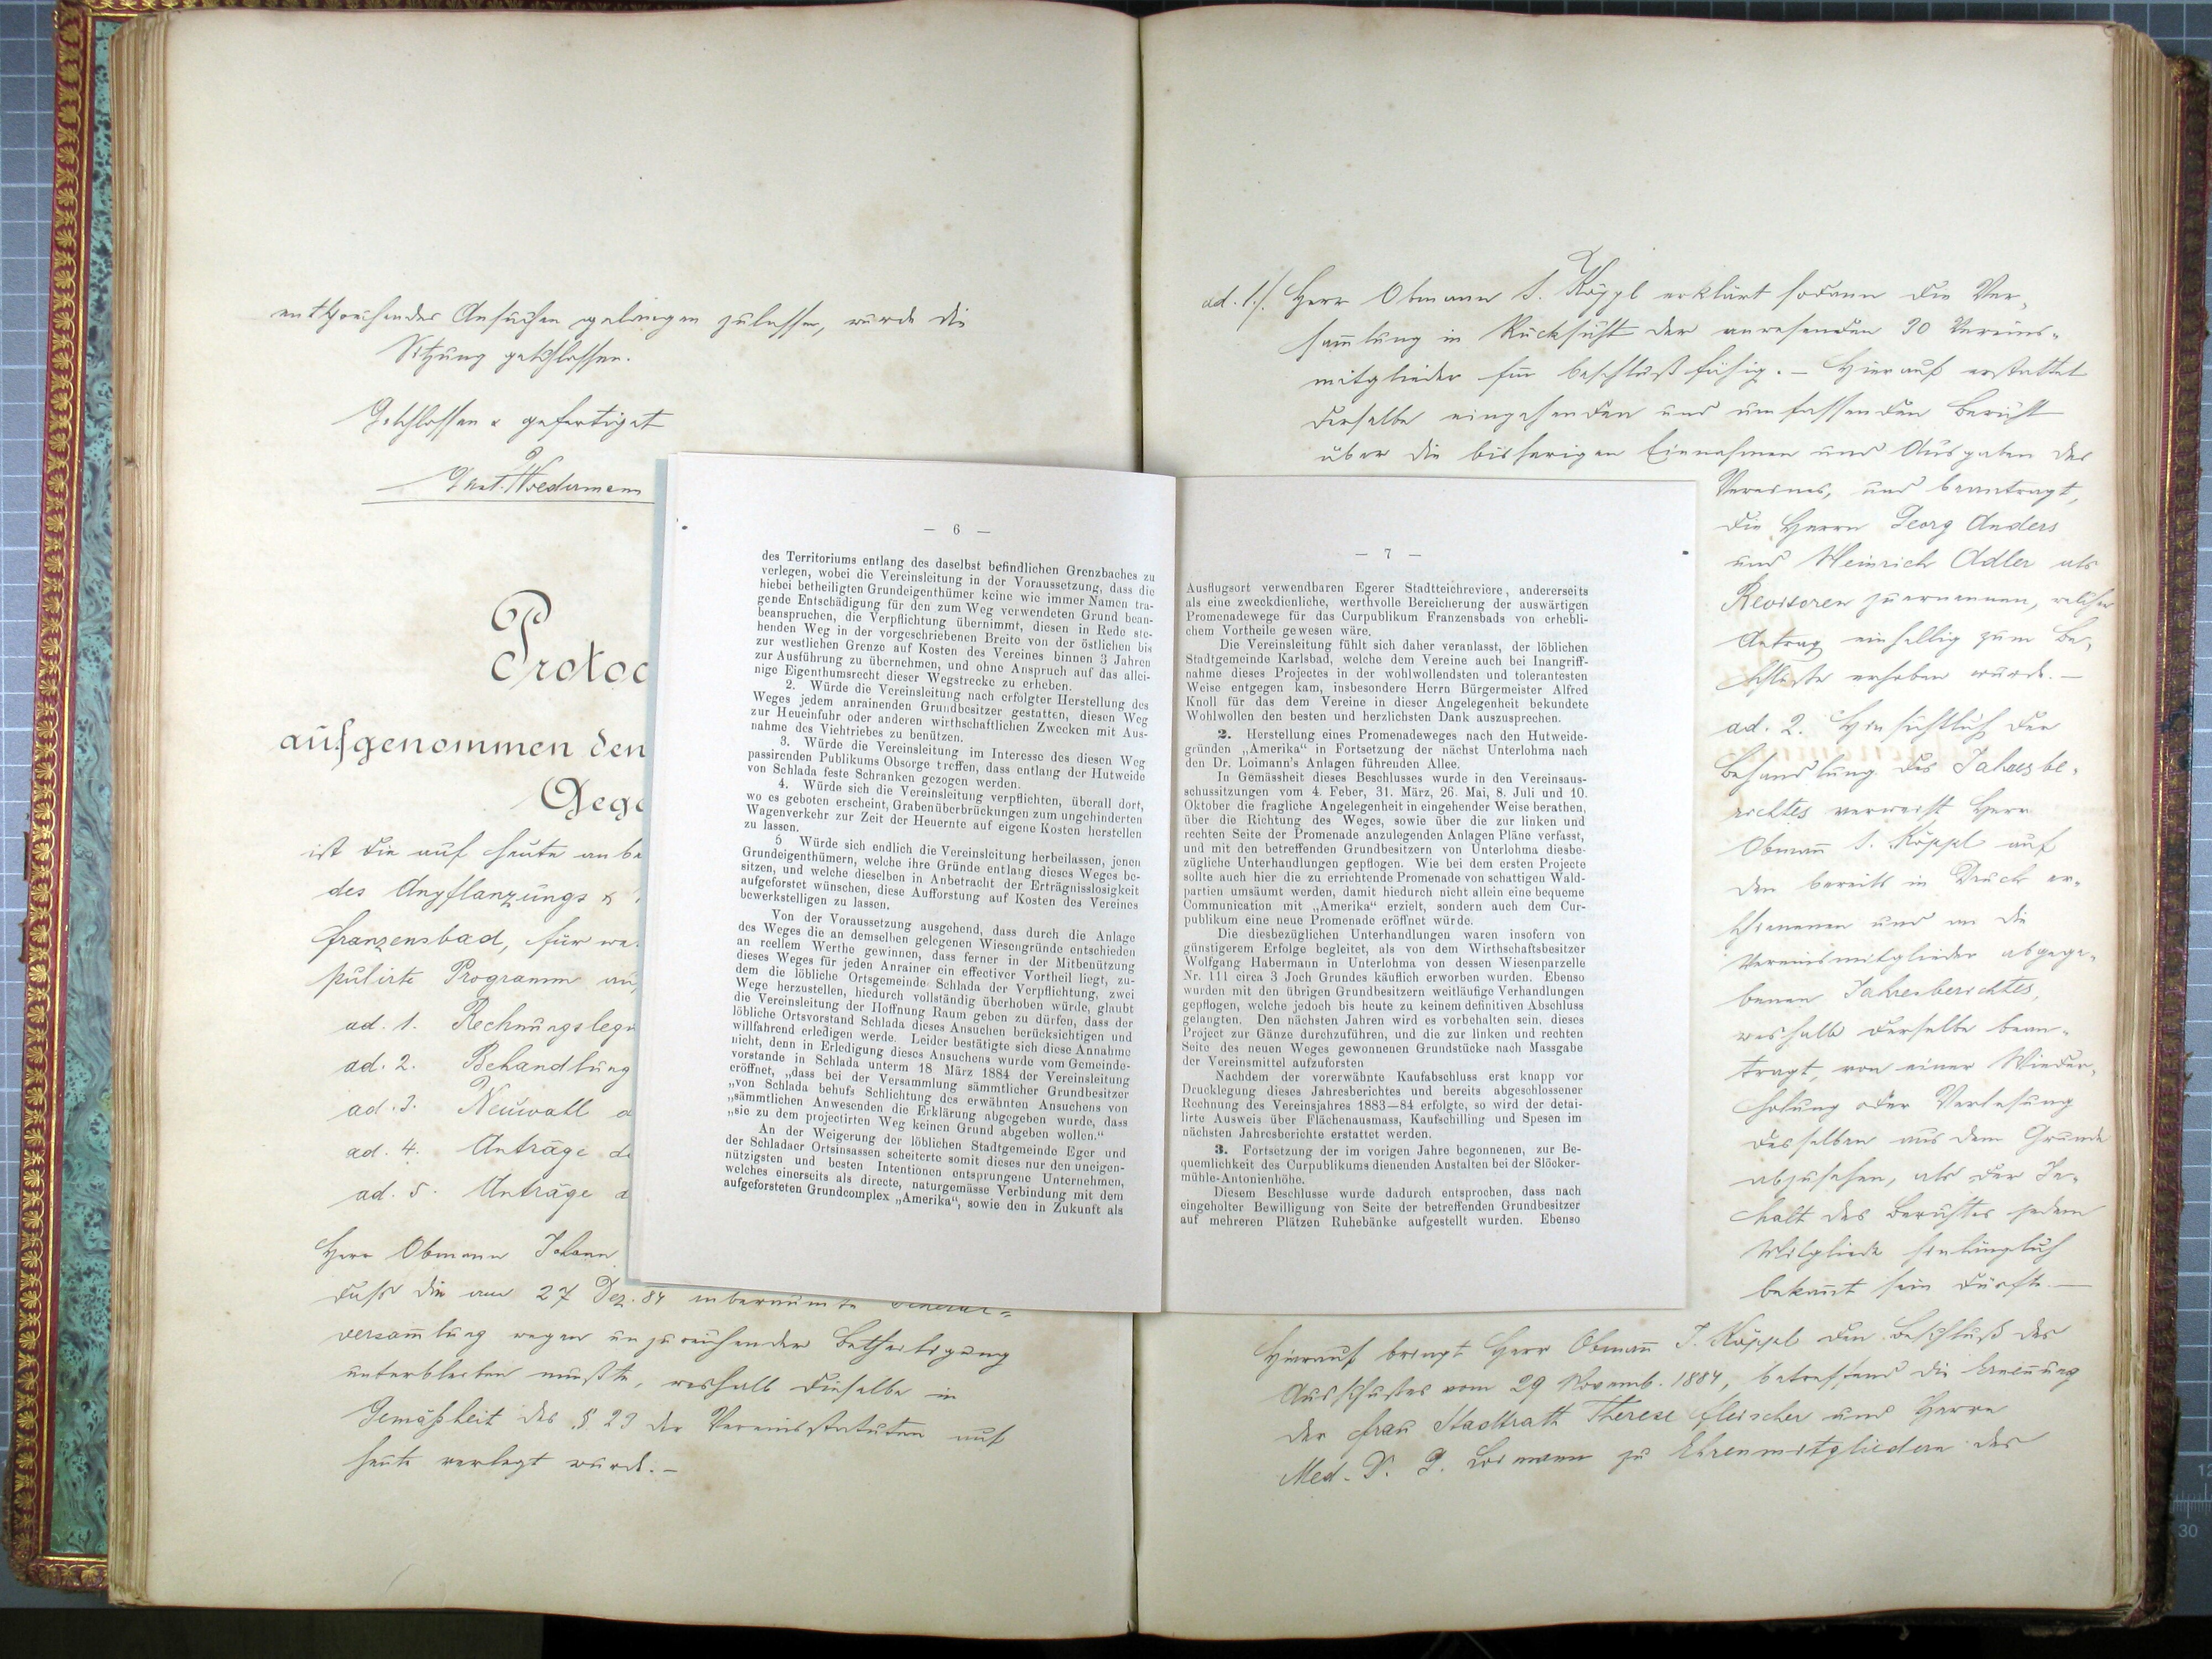 entsprechendes Ansuchen gelangen zu lassen, wurde die
Sitzung geschlossen.
Geschlossen & gefertiget
Protoc
aufgenommen den
Gege
ist die auf heute anbe
des Anpflanzungs &
Franzensbad, für we
pulirte Programm
ad. 1. Rechnungslegu
ad. 2. Behandlung
ad. 3. Neuwahl
ad. 4. Anträge d
ad. 5. Anträge d
Herr Obmann Johann
daß die am 27 Dez. 84 anberaumte General-
versam̄lung wegen unzureichender Betheiligung
unterbleiben mußte, weshalb dieselbe in
Gemäßheit des § 23 der Vereinsstatuten auf
heute verlegt wurde. –
— 6 —
des Territoriums entlang des daselbst befindlichen Grenzbaches zu
verlegen, wobei die Vereinsleitung in der Voraussetzung, dass die
hiebei betheiligten Grundeigenthümer keine wie immer Namen tra-
gende Entschädigung für den zum Weg verwendeten Grund bean-
beanspruchen, die Verpflichtung übernimmt, diesen in Rede ste-
henden Weg in der vorgeschriebenen Breite von der östlichen bis
zur westlichen Grenze auf Kosten des Vereines binnen 3 Jahren
zur Ausführung zu übernehmen, und ohne Anspruch auf das allei-
nige Eigenthumsrecht dieser Wegstrecke zu erheben.
2. Würde die Vereinsleitung nach erfolgter Herstellung des
Weges jedem anrainenden Grundbesitzer gestatten, diesen Weg
zur Heueinfuhr oder anderen wirthschaftlichen Zwecken mit Aus-
nahme des Viehtriebes zu benützen.
3. Würde die Vereinsleitung im Interesse des diesen Weg
passirenden Publikums Obsorge treffen, dass entlang der Hutweide
von Schlada feste Schranken gezogen werden.
4. Würde sich die Vereinsleitung verpflichten, überall dort,
wo es geboten erscheint, Grabenüberbrückungen zum ungehinderten
Wagenverkehr zur Zeit der Heuernte auf eigene Kosten herstellen
zu lassen.
5 Würde sich endlich die Vereinsleitung herbeilassen, jenen
Grundeigenthümern, welche ihre Gründe entlang dieses Weges be-
sitzen, und welche dieselben in Anbetracht der Erträgnisslosigkeit
aufgeforstet wünschen, diese Aufforstung auf Kosten des Vereines
bewerkstelligen zu lassen.
Von der Voraussetzung ausgehend, dass durch die Anlage
des Weges die an demselben gelegenen Wiesengründe entschieden
an reellem Werthe gewinnen, dass ferner in der Mitbenützung
dieses Weges für jeden Anrainer ein effectiver Vortheil liegt, zu-
dem die löbliche Ortsgemeinde Schlada der Verpflichtung, zwei
Wege herzustellen, hiedurch vollständig überhoben würde, glaubt
die Vereinsleitung der Hoffnung Raum geben zu dürfen, dass der
löbliche Ortsvorstand Schlada dieses Ansuchen berücksichtigen und
willfahrend erledigen werde. Leider bestätigte sich diese Annahme
nicht, denn in Erledigung dieses Ansuchens wurde vom Gemeinde-
vorstande in Schlada unterm 18 März 1884 der Vereinsleitung
eröffnet, „dass bei der Versammlung sämmtlicher Grundbesitzer
„von Schlada behufs Schlichtung des erwähnten Ansuchens von
„sämmtlichen Anwesenden die Erklärung abgegeben wurde, dass
„sie zu dem projectirten Weg keinen Grund abgeben wollen.“
An der Weigerung der löblichen Stadtgemeinde Eger und
der Schladaer Ortsinsassen scheiterte somit dieses nur den uneigen-
nützigsten und besten Intentionen entsprungene Unternehmen,
welches einerseits als directe, naturgemässe Verbindung mit dem
aufgeforsteten Grundcomplex „Amerika“, sowie den in Zukunft als
— 7 —
Ausflugsort verwendbaren Egerer Stadtteichreviere, andererseits
als eine zweckdienliche, werthvolle Bereicherung der auswärtigen
Promenadewege für das Curpublikum Franzensbads von erhebli-
chem Vortheile gewesen wäre.
Die Vereinsleitung fühlt sich daher veranlasst, der löblichen
Stadtgemeinde Karlsbad, welche dem Vereine auch bei Inangriff-
nahme dieses Projectes in der wohlwollendsten und tolerantesten
Weise entgegen kam, insbesondere Herrn Bürgermeister Alfred
Knoll für das dem Vereine in dieser Angelegenheit bekundete
Wohlwollen den besten und herzlichsten Dank auszusprechen.
2. Herstellung eines Promenadeweges nach den Hutweide-
gründen „Amerika“ in Fortsetzung der nächst Unterlohma nach
den Dr. Loimann's Anlagen führenden Allee.
In Gemässheit dieses Beschlusses wurde in den Vereinsaus-
schussitzungen vom 4. Feber, 31. März, 26. Mai, 8. Juli und 10.
Oktober die fragliche Angelegenheit in eingehender Weise berathen,
über die Richtung des Weges, sowie über die zur linken und
rechten Seite der Promenade anzulegenden Anlagen Pläne verfasst,
und mit den betreffenden Grundbesitzern von Unterlohma diesbe-
zügliche Unterhandlungen gepflogen. Wie bei dem ersten Projecte
sollte auch hier die zu errichtende Promenade von schattigen Wald-
partien umsäumt werden, damit hiedurch nicht allein eine bequeme
Communication mit „Amerika“ erzielt, sondern auch dem Cur-
publikum eine neue Promenade eröffnet würde.
Die diesbezüglichen Unterhandlungen waren insofern von
günstigerem Erfolge begleitet, als von dem Wirthschaftsbesitzer
Wolfgang Habermann in Unterlohma von dessen Wiesenparzelle
Nr. 111 circa 3 Joch Grundes käuflich erworben wurden. Ebenso
wurden mit den übrigen Grundbesitzern weitläufige Verhandlungen
gepflogen, welche jedoch bis heute zu keinem definitiven Abschluss
gelangten. Den nächsten Jahren wird es vorbehalten sein, dieses
Project zur Gänze durchzuführen, und die zur linken und rechten
Seite des neuen Weges gewonnenen Grundstücke nach Massgabe
der Vereinsmittel aufzuforsten
Nachdem der vorerwähnte Kaufabschluss erst knapp vor
Drucklegung dieses Jahresberichtes und bereits abgeschlossener
Rechnung des Vereinsjahres 1883—84 erfolgte, so wird der detai-
lirte Ausweis über Flächenausmass, Kaufschilling und Spesen im
nächsten Jahresberichte erstattet werden.
3. Fortsetzung der im vorigen Jahre begonnenen, zur Be-
quemlichkeit des Curpublikums dienenden Anstalten bei der Slöcker-
mühle-Antonienhöhe.
Diesem Beschlusse wurde dadurch entsprochen, dass nach
eingeholter Bewilligung von Seite der betreffenden Grundbesitzer
auf mehreren Plätzen Ruhebänke aufgestellt wurden. Ebenso
ad. 1./. Herr Obmann J. Köppl erklärt sodann die Ver-
sam̄lung in Rücksicht der anwesenden 30 Vereins-
mitglieder für beschlußfähig. – Hierauf erstattet
derselbe eingehenden und umfassenden Bericht
über die bisherigen Einnahmen und Ausgaben des
Vereines, und beantragt,
die Herrn Georg Anders
und Heinrich Adler als
Revisoren zu ernennen, welcher
Antrag einhellig zum Be-
schluße erhoben wurde. –
ad. 2. Hinsichtlich der
Behandlung des Jahresbe-
richtes verweist Herr
Obman̄ J. Köppl auf
den bereits in Druck er-
schienenen und an die
Vereinsmitglieder abgege-
benen Jahresberichtes,
weshalb derselbe bean-
tragt, von einer Wieder-
holung oder Verlesung
desselben aus dem Grunde
abzusehen, als der In-
halt des Berichtes jedem
Mitgliede hinlänglich
bekan̄t sein dürfte. –
Hierauf bringt Herr Obman̄ J. Köppl den Beschluß des
Ausschußes vom 29 Novemb. 1884, betreffend die Ernen̄ung
der Frau Stadtrath Therese Fleischer und Herrn
Med. Dr. G. Loimann zu Ehrenmitgliedern des